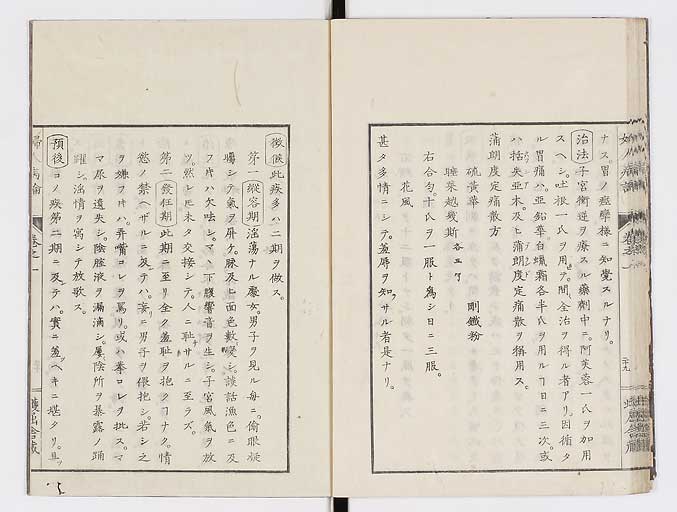 ナス。胃ノ痙攣様ニ知覚スルナリ。
治法 子宮衝逆ヲ療スル藥劑中ニ。阿芙蓉一氏ヲ加用
スヘシ。吐根一氏ヲ用ヲ。間全治ヲ得ル者アリ。因循タ
ル胃痛ハ。亞鉛華白蝋霜各半氏ヲ用ル了日ニ三次。或
ハ括失亞木。及ヒ蒲朗度定痛散ヲ稱用ス。
蒲朗度定痛散方
硫黃華 剛鐵粉
睡菜越幾斯 各五
右合匀。十氏ヲ一服ト為シ日ニ三服。
花風
甚タ多情ニシテ。羞辱ヲ知サル者是ナリ。
徴候 此疾多ハ二期ヲ做ス。
第一縦容期 淫蕩ナル慶女。男子ヲ見ル毎ニ。偷眼凝
矚シテ氣ヲ屏ケ。脉及ヒ面色數變シ。談話漁色ニ及
フ片ハ欠呿シ。下腹響音ヲ生シ。子宮風氣ヲ放
ツ。然レ𪜈未タ交接シテ。人ニ耻サルニ至ラズ。
第二發狂期 此期ニ至リ全ク羞耻ヲ抱ク了ナク。情
慾ノ禁ヘザルニ及テハ。妄ニ男子ヲ偎抱シ。若シ之
ヲ嫌フ片ハ。弄嘴コレヲ罵リ。或ハ拳コレヲ批ス。
マ尿ヲ遺失シ。陰腟液ヲ漏滴シ。屢陰所ヲ暴露ノ踊
躍シ。淫情ヲ寫シテ放歌ス。
預後 コノ疾第二期ニ及テハ。實ニ羞ヘキニ堪タリ。且